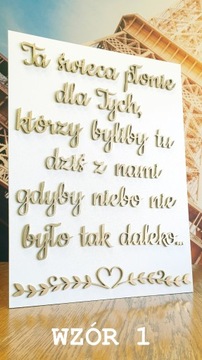 Ta świeca płonie
dla Tych,
którzy byliby tu
dziś z nami
gdyby niebo nie
było tak daleko...
WZÓR 1